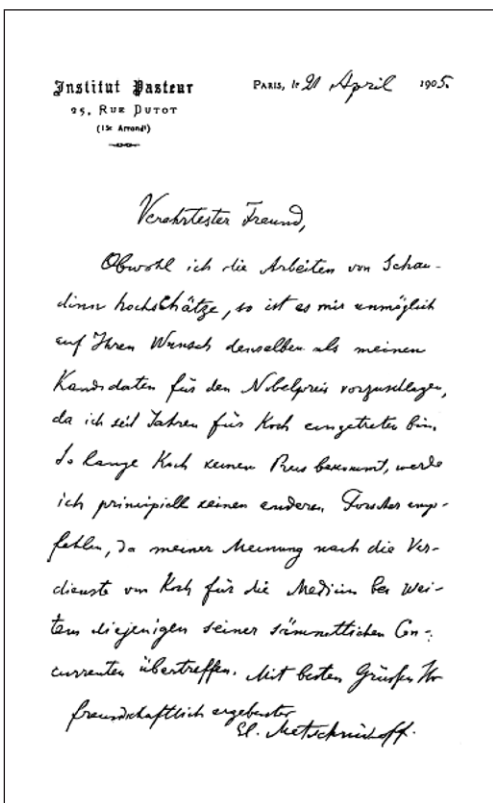 Institut Pasteur
25, RUE DUTOT
(15e Arrondt)
PARIS, le 21 April 1905.
Verehrtester Freund,
Obwohl ich die Arbeiten von Schau-
dinn hochschätze, so ist es mir unmöglich
auf Ihren Wunsch denselben als meinen
Kandidaten für den Nobelpreis vorzuschlagen,
da ich seit Jahren für Koch eingetreten bin.
So lange Koch keinen Preis bekommt, werde
ich principiell keinen anderen Forscher emp-
fehlen, da meiner Meinung nach die Ver-
dienste von Koch für die Medicin bei Wei-
tem diejenigen seiner sämmtlichen Con-
currenten übertreffen. Mit besten Grüßen Ihr
freundschaftlich ergebenster
El. Metschnikoff.